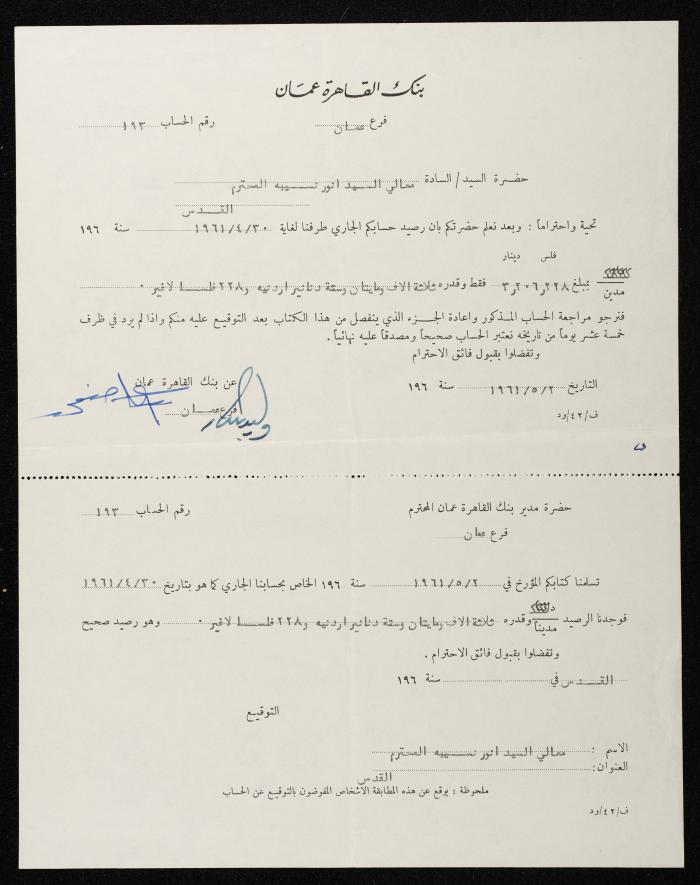 بنك القاهرة عمان
فرع عمان رقم الحساب ١٩٣
حضرة السيد / السادة معالي السيد انور نسيبه المحترم
القدس
تحية واحتراماً : وبعد نعلم حضرتكم بان رصيد حسابكم الجاري طرفنا لغاية ١٩٦١/٤/٣٠ سنة ١٩٦
فلس دينار
مدين بمبلغ ٣,٢٠٦,٢٢٨ فقط وقدره ثلاثة الاف ومايتان وستة دنانير اردنيه و٢٢٨ فلسا لاغير ٠
فنرجو مراجعة الحساب المذكور واعادة الجزء الذي ينفصل من هذا الكتاب بعد التوقيع عليه منكم واذا لم يرد في ظرف
خمسة عشر يوماً من تاريخه نعتبر الحساب صحيحاً ومصدقاً عليه نهائياً .
وتفضلوا بقبول فائق الاحترام
التاريخ ١٩٦١/٥/٢ سنة ١٩٦
عن بنك القاهرة عمان
فرع عمان
ف/٤٢/ود
حضرة مدير بنك القاهرة عمان المحترم رقم الحساب ١٩٣
فرع عمان
تسلمنا كتابكم المؤرخ في ١٩٦١/٥/٢ سنة ١٩٦ الخاص بحسابنا الجاري كما هو بتاريخ ١٩٦١/٤/٣٠
فوجدنا الرصيد مديناً وقدره ثلاثة الاف ومايتان وستة دنانير اردنيه و٢٢٨ فلسا لاغير ٠ وهو رصيد صحيح
وتفضلوا بقبول فائق الاحترام .
القدس في سنة ١٩٦
التوقيع
الاسم : معالي السيد انور نسيبه المحترم
العنوان :
القدس
ملحوظة : يوقع عن هذه المطابقة الاشخاص المفوضون بالتوقيع عن الحساب
ف/٤٢/ود